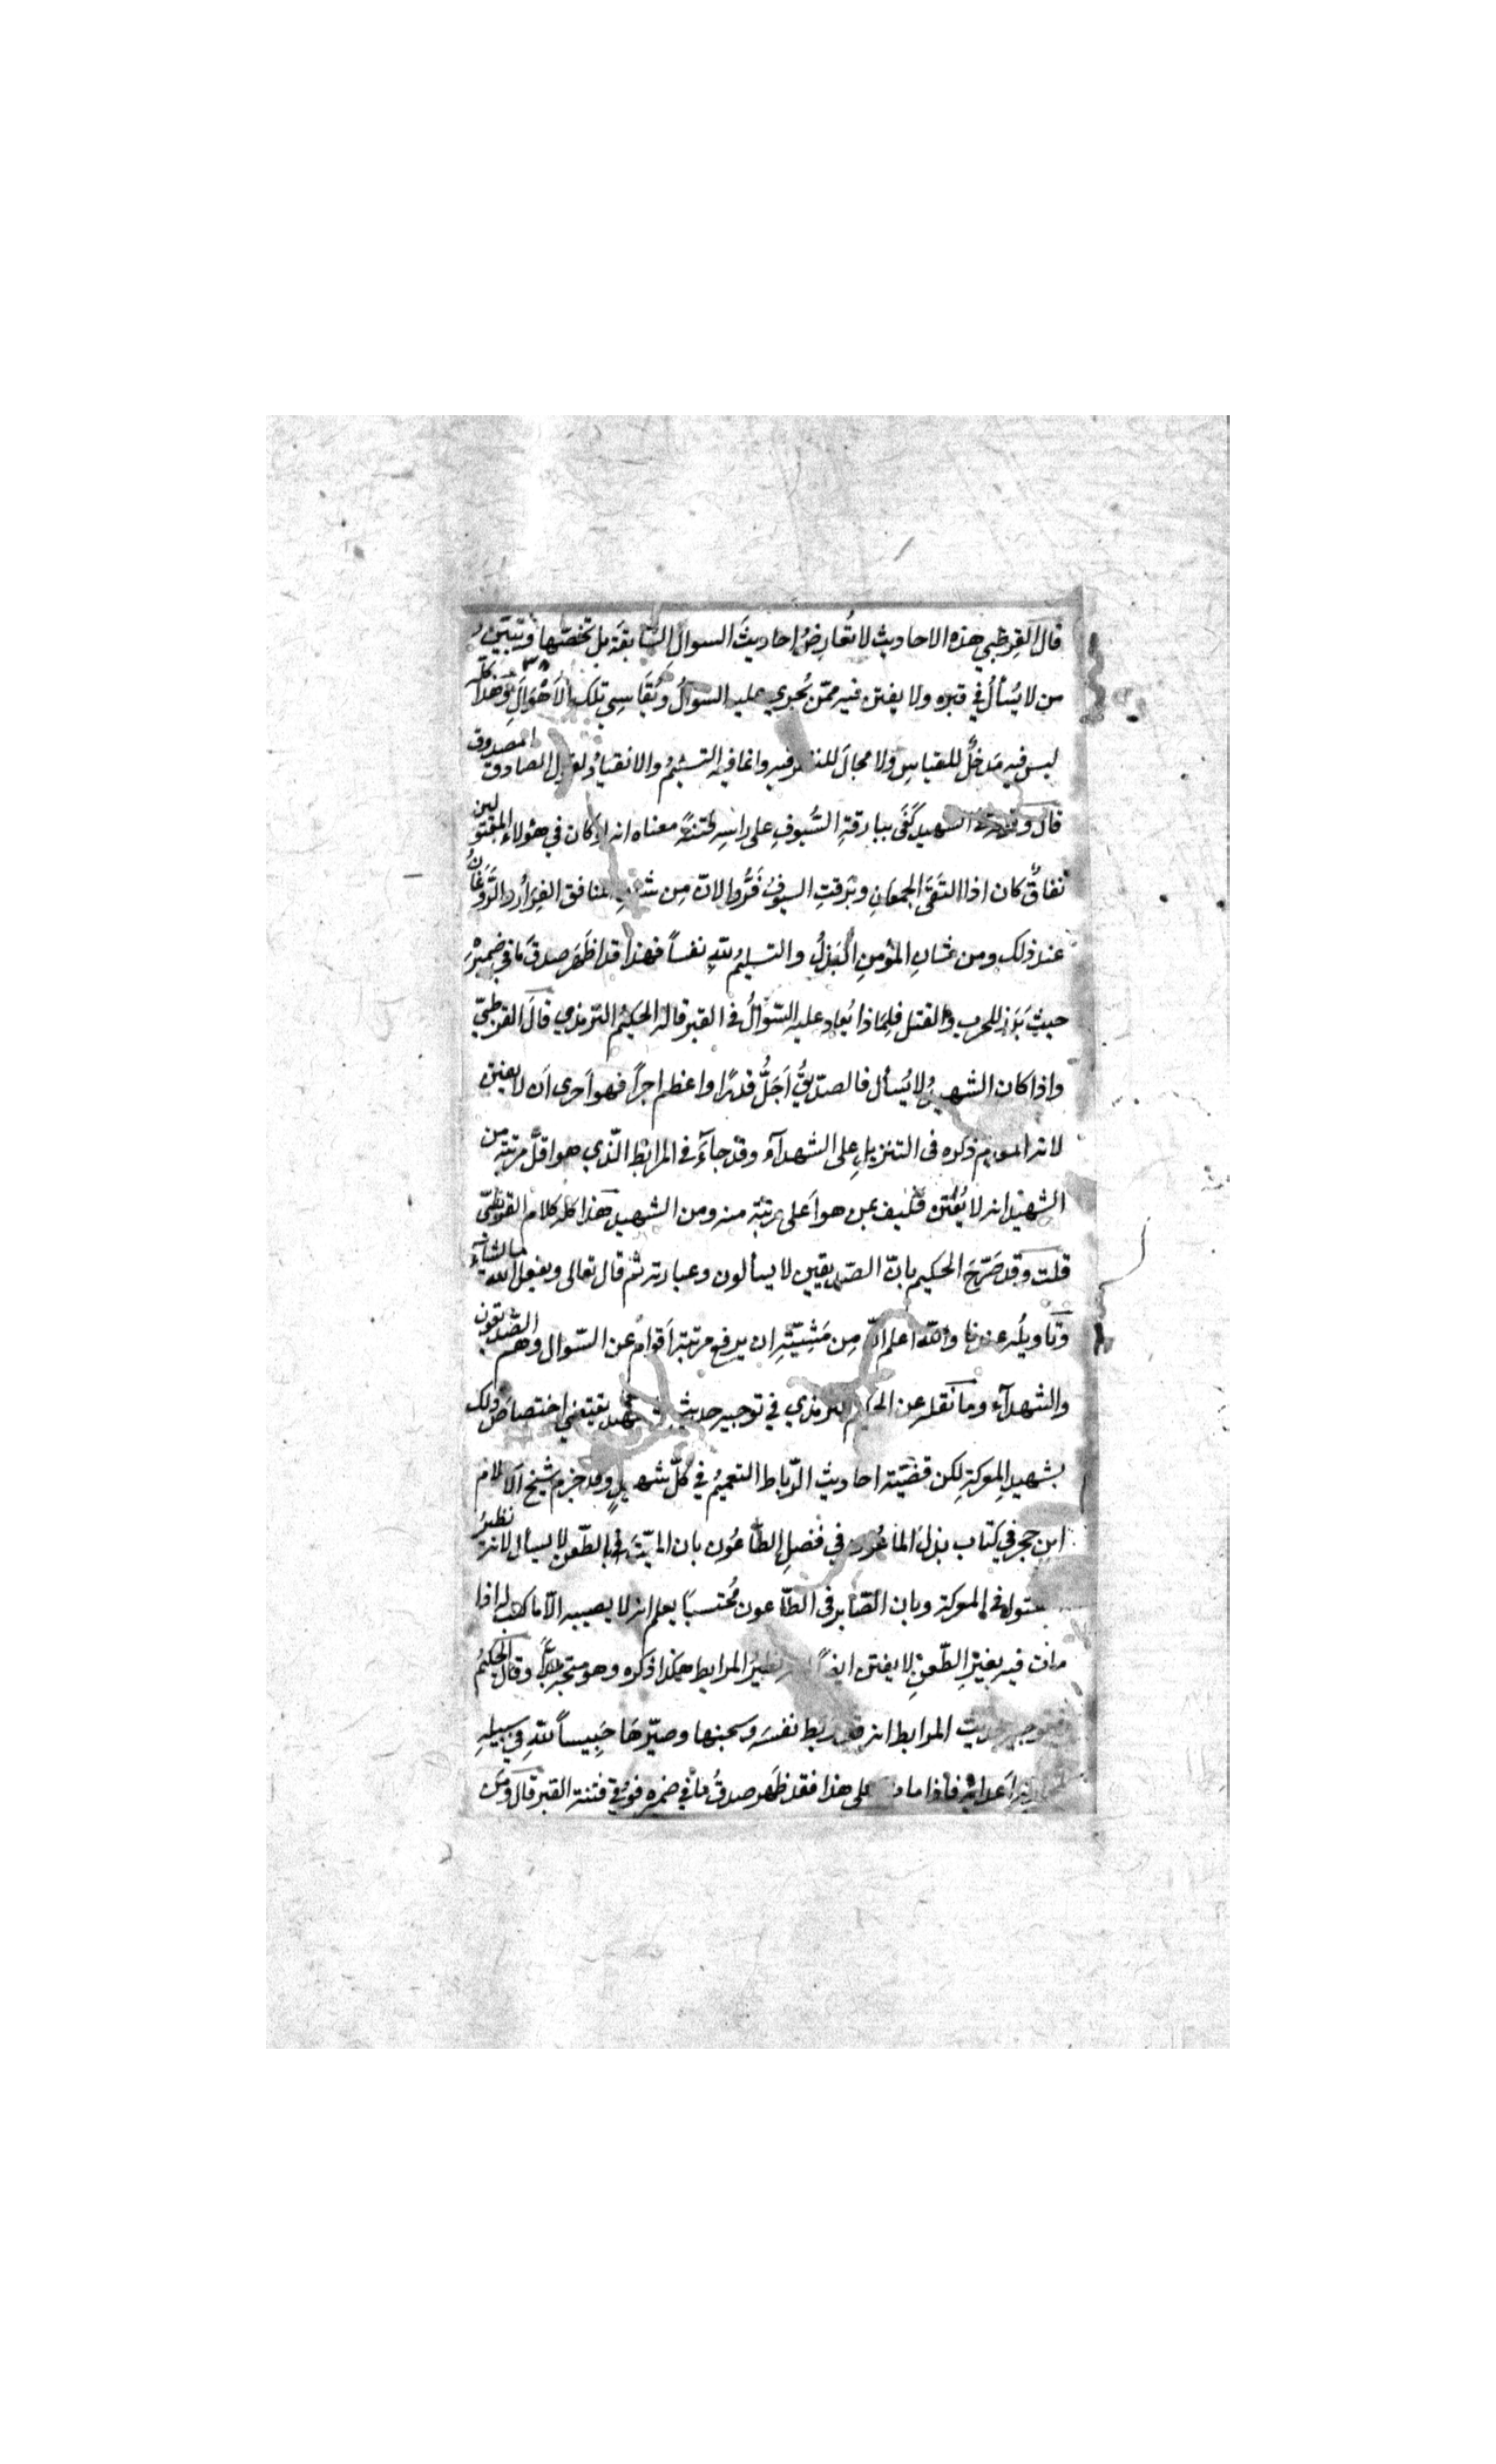 قال القرطبي هذه الاحاديث لا تُعارِضُ احاديثَ السوالِ السّابقة بل تخصّها وتبيّن
من لا يُسألُ في قبره ولا يفتن فيه ممّن يُجري عليه السوالُ ويُقَاسِي تلك الاَهْوَالَ وَهَذا كله
ليس فيه مَدخلٌ للقياسِ ولا مجالَ للنظر فيه وانما فيه التسليمُ والانقيادُ لقول الصادق المصدوق
قال وقوله الشهيد كَفَى ببارقةِ السُّيوفِ على راسِه فتنةً معناه انه لو كان في هؤلاء المفتولين
نفاقٌ كان اذا التَقَى الجمعَانِ وبَرقتِ السيوفُ فَرُّوا لانّ مِن شان المنافق الفِرَار والرَّوَغَانُ
عند ذلك ومن شانِ المؤمنِ البَذلُ والتسليمُ للّهِ نفساً فهذا قد اظَهَر صدقَ مَا في ضَميرْه
حيثُ بَرَز للحرب والقتل فلِمَاذا يُعاد عليه السّوالُ في القبر قاله الحَكيمُ التّرمذي قالَ القرطبيّ
واذا كان الشهيدُ لا يُسأل فالصدّيقُ اَجَلُّ قدرًا واعظم اجراً فهو اَحرى اَن لا يفتن
لانه المقدم ذكره فى التنزيلِ على الشهدآء وقد جآءَ فى المرابَط الّذي هو اقلُّ مرتبةً من
الشهيد انه لا يُفْتَن فَكيف بمن هو اَعلى مرتبةً منه ومن الشهيد هَذا كله كلام القرطبيّ
قلت وقد صَرّحَ الحكيم بانّ الصّديقين لا يسألون وعبارته ثم قال تعالى ويفعل الله ما يشآء
وتاويلُه عندنا واللهُ اعلم انّ مِن مَشِيّتِه ان يرفع مرتبة اَقوام عن السّوال وهم الصّدّيقون
والشهدآء وما نقله عن الحكيم الترمذي في توجيه حديثِ الشهيد يقتضي اختصاصَ ذلك
بشهيدِ المعركةِ لكن قضيّة احاديث الرّباط التعميمُ في كُلّ شهيدٍ وقد جزم شيخ الاسلام
ابن حجر في كتاب بذل الماعُون في فضلِ الطّاعُون بان الميّتَ بالطّعن لا يسأل لانه نظيرُ
المقتول فى المعركة وبان الصّابر فى الطّاعون مُحتسباً يعلم انه لا يصيبه الّا ما كتب له اذا
مات فيه بغيرِ الطّعنِ لا يفتن ايضاً لانه نظيرُ المرابط هكذا ذكره وهو متّجه جدّاً وقال الحكيمُ
في توجيه حديث المرابط انه قد رَبط نفسَه وسجنها وصيّرهَا حَبِيساً للّهِ في سبيلِه
لمحاربة اَعدائِه فاذا مات على هذا فقد ظَهر صدقُ ما في ضميره فوُقي فتنة القبر قال ومن